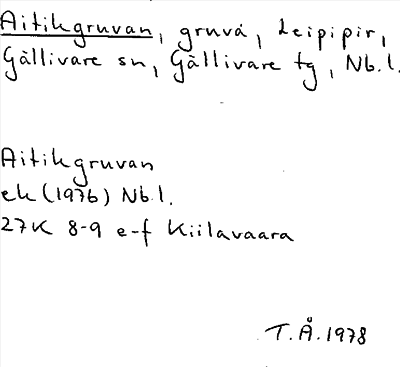 Aitikgruvan, gruva, Leipipir,
Gällivare sn, Gällivare tg, Nb.l.
Aitikgruvan
ek (1976) Nb.l.
27K 8-9 e-f Kiilavaara
T.Å. 1978